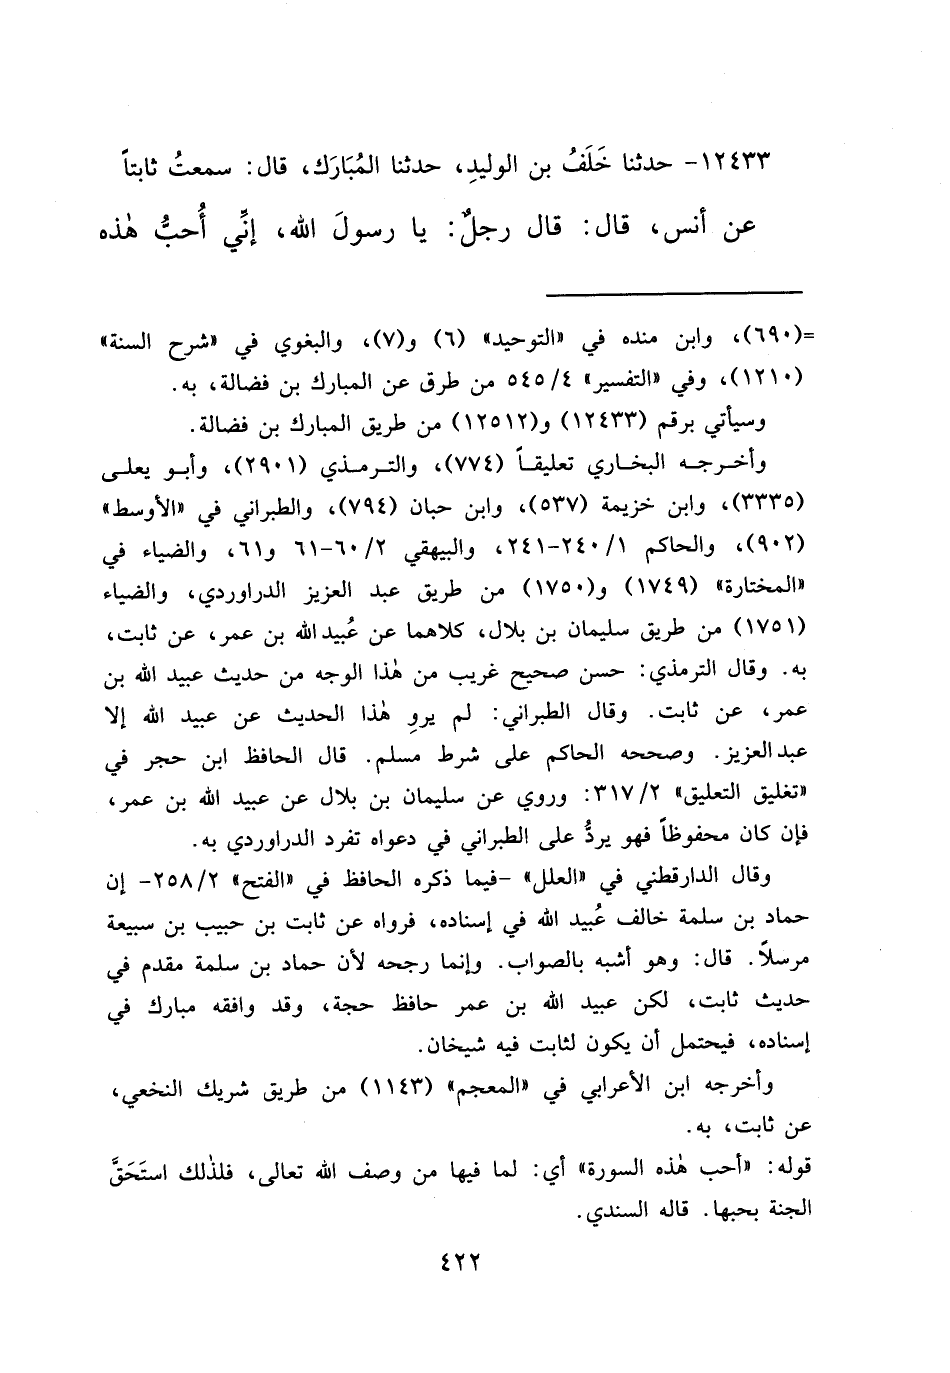 ١٢٤٣٣- حدثنا خَلَفُ بن الوليدِ، حدثنا المُبَارَك، قال: سمعتُ ثابتاً
عن أنس، قال: قال رجلٌ: يا رسولَ الله، إنِّي أُحبُّ هٰذه
=(٦٩٠)، وابن منده في «التوحيد» (٦) و(٧)، والبغوي في «شرح السنة»
(١٢١٠)، وفي «التفسير» ٥٤٥/٤ من طرق عن المبارك بن فضالة، به.
وسيأتي برقم (١٢٤٣٣) و(١٢٥١٢) من طريق المبارك بن فضالة.
وأخرجه البخاري تعليقاً (٧٧٤)، والترمذي (٢٩٠١)، وأبو يعلى
(٣٣٣٥)، وابن خزيمة (٥٣٧)، وابن حبان (٧٩٤)، والطبراني في «الأوسط»
(٩٠٢)، والحاكم ٢٤٠/١-٢٤١، والبيهقي ٦٠/٢-٦١ و٦١، والضياء في
«المختارة» (١٧٤٩) و(١٧٥٠) من طريق عبد العزيز الدراوردي، والضياء
(١٧٥١) من طريق سليمان بن بلال، كلاهما عن عُبيد الله بن عمر، عن ثابت،
به. وقال الترمذي: حسن صحيح غريب من هٰذا الوجه من حديث عبيد الله بن
عمر، عن ثابت. وقال الطبراني: لم يروِ هٰذا الحديث عن عبيد الله إلا
عبد العزيز. وصححه الحاكم على شرط مسلم. قال الحافظ ابن حجر في
«تغليق التعليق» ٣١٧/٢: وروي عن سليمان بن بلال عن عبيد الله بن عمر،
فإن كان محفوظاً فهو يردُّ على الطبراني في دعواه تفرد الدراوردي به.
وقال الدارقطني في «العلل» -فيما ذكره الحافظ في «الفتح» ٢٥٨/٢- إن
حماد بن سلمة خالف عُبيد الله في إسناده، فرواه عن ثابت بن حبيب بن سبيعة
مرسلاً. قال: وهو أشبه بالصواب. وإنما رجحه لأن حماد بن سلمة مقدم في
حديث ثابت، لكن عبيد الله بن عمر حافظ حجة، وقد وافقه مبارك في
إسناده، فيحتمل أن يكون لثابت فيه شيخان.
وأخرجه ابن الأعرابي في «المعجم» (١١٤٣) من طريق شريك النخعي،
عن ثابت، به.
قوله: «أحب هٰذه السورة» أي: لما فيها من وصف الله تعالى، فلذٰلك استَحَقَّ
الجنة بحبها. قاله السندي.
٤٢٢